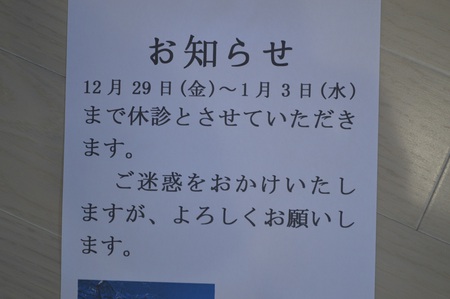 お知らせ
12月29日(金)～1月3日(水)
まで休診とさせていただき
ます。
ご迷惑をおかけいたし
ますが、よろしくお願いし
ます。